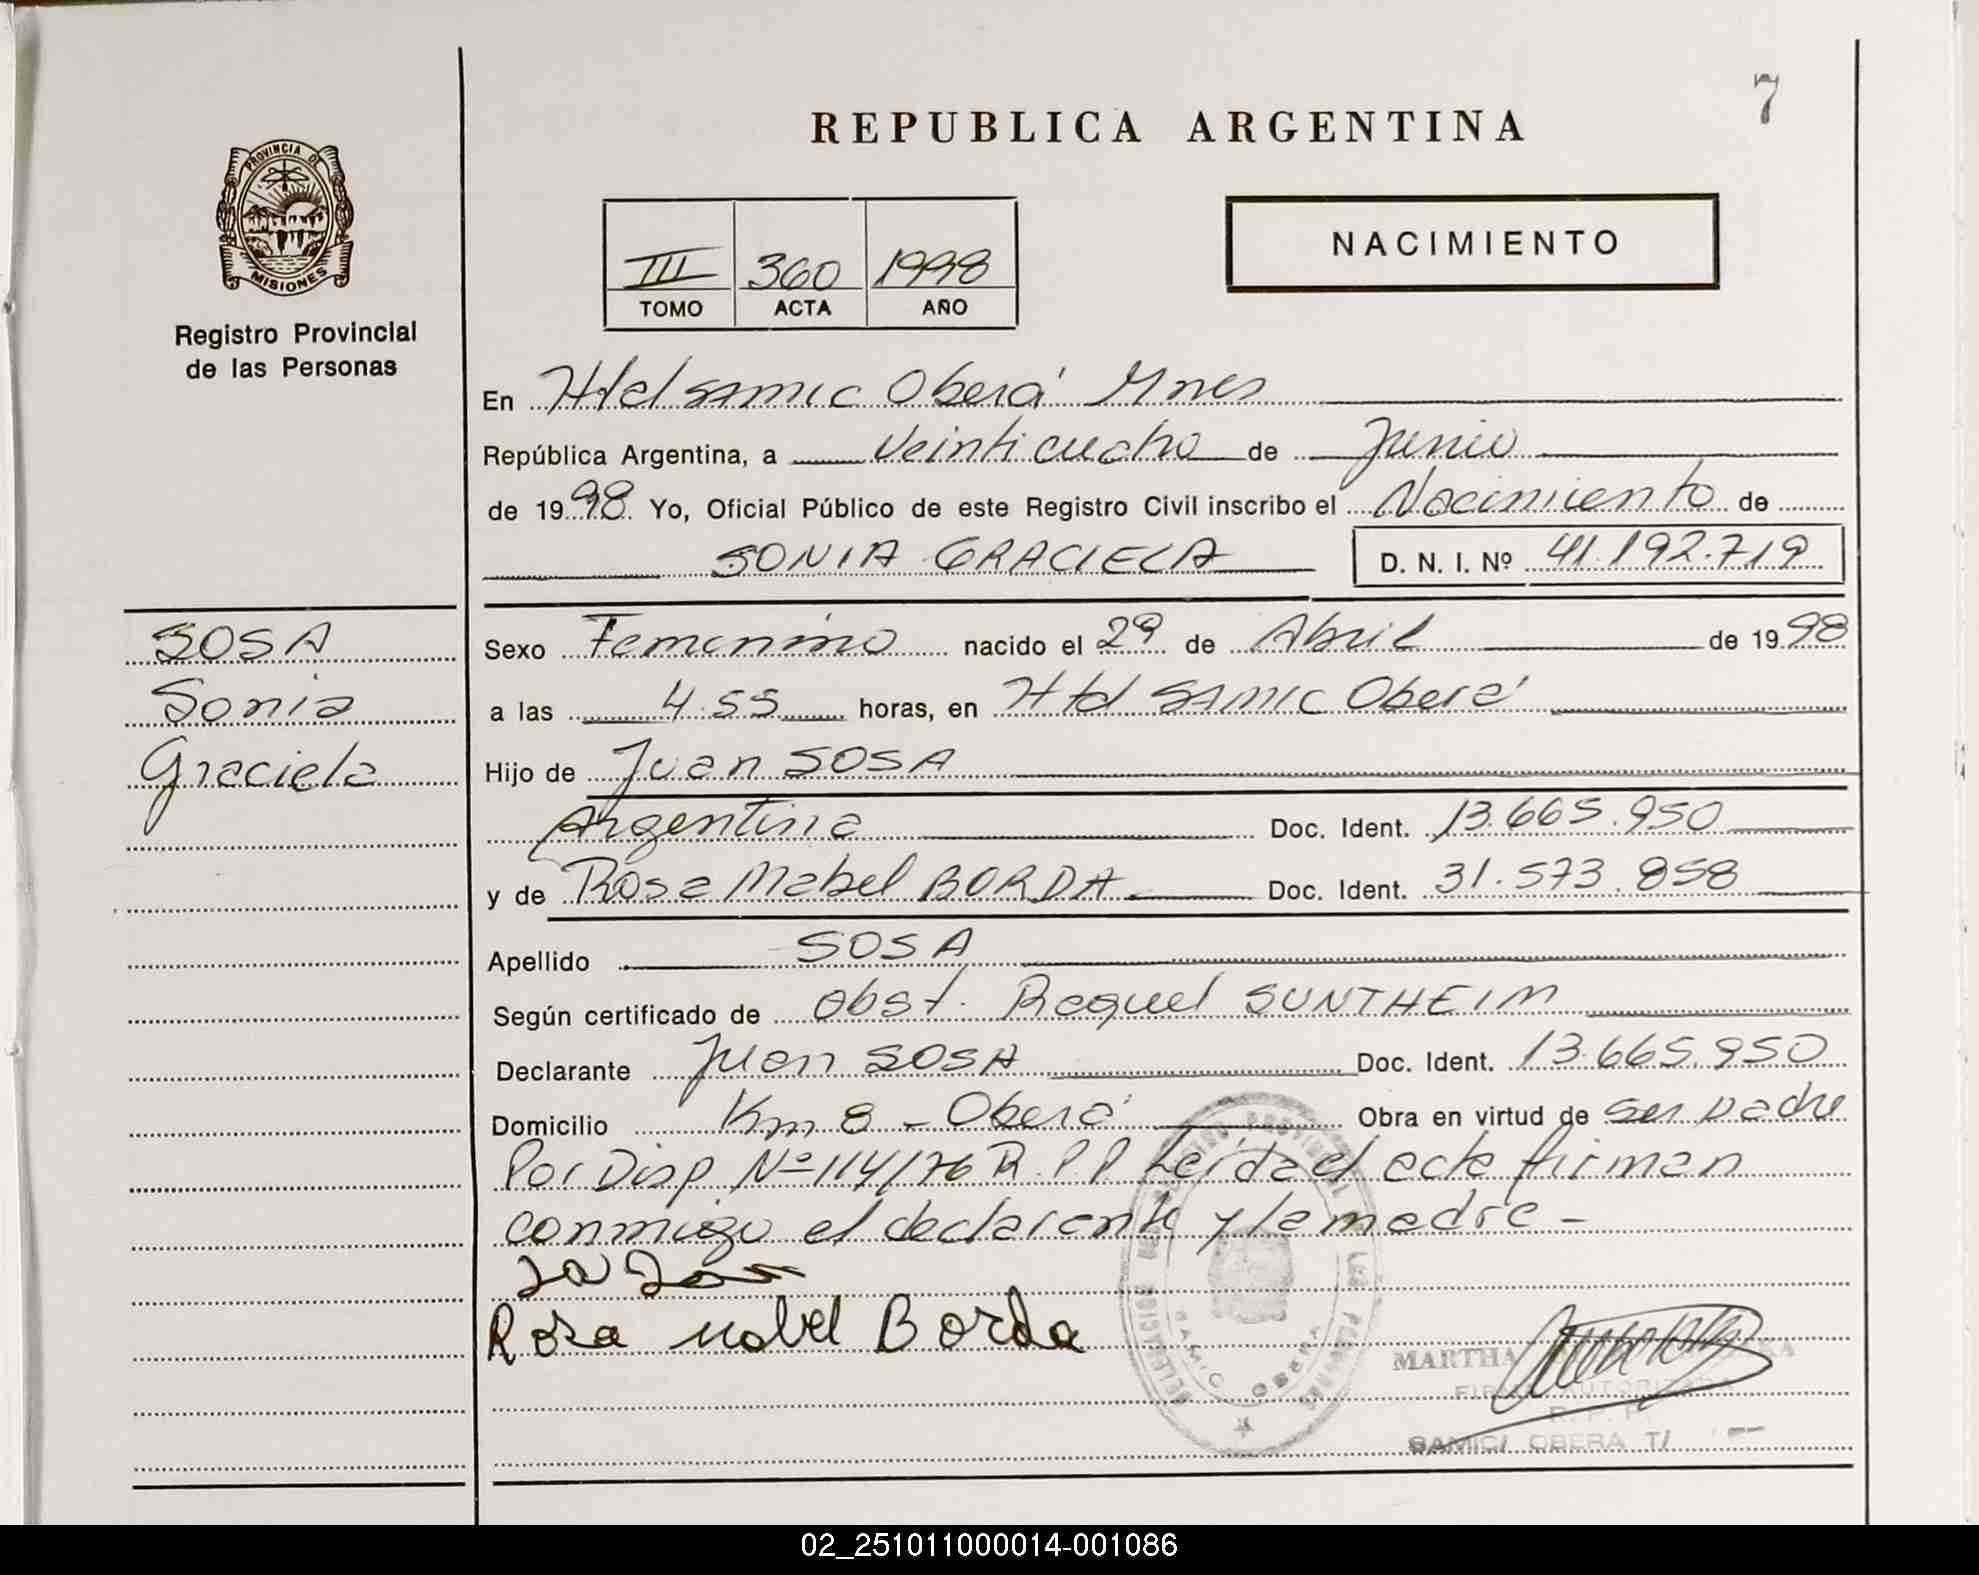 7
REPUBLICA ARGENTINA
PROVINCIA DE
MISIONES
Registro Provincial
de las Personas
III 360 1998
TOMO ACTA AÑO
NACIMIENTO
En Htel SAMIC Oberá Mnes
República Argentina, a Veinticuatro de Junio
de 1998 Yo, Oficial Público de este Registro Civil inscribo el Nacimiento de
SONIA GRACIELA D. N. I. Nº 41.192.719
SOSA
Sonia
Graciela
Sexo Femenino nacido el 29 de Abril de 1998
a las 4.55 horas, en Htel SAMIC Oberá
Hijo de Juan SOSA
Argentina Doc. Ident. 13.665.950
y de Rosa Mabel BORDA Doc. Ident. 31.573.858
Apellido SOSA
Según certificado de Obst. Raquel SUNTHEIM
Declarante Juan SOSA Doc. Ident. 13.665.950
Domicilio Km 8 - Oberá Obra en virtud de ser padre
Por Disp Nº 114/76 R.P.P Leída el acta firman
conmigo el declarante y la madre -
Rosa mabel Borda
MARTHA
FIRMA AUTORIZADA
R. P. P.
SAMIC/ OBERA T/
02_251011000014-001086